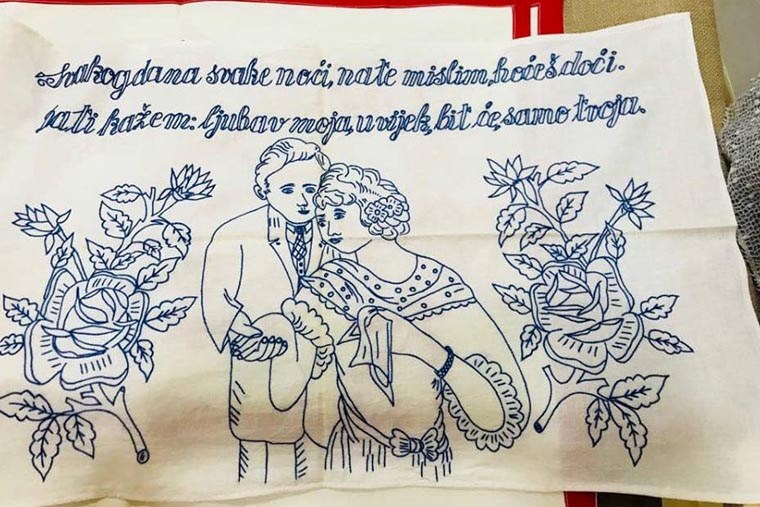 Svakog dana svake noći, na te mislim, hoćeš doći.
Ja ti kažem: ljubav moja, uvijek, bit će, samo tvoja.